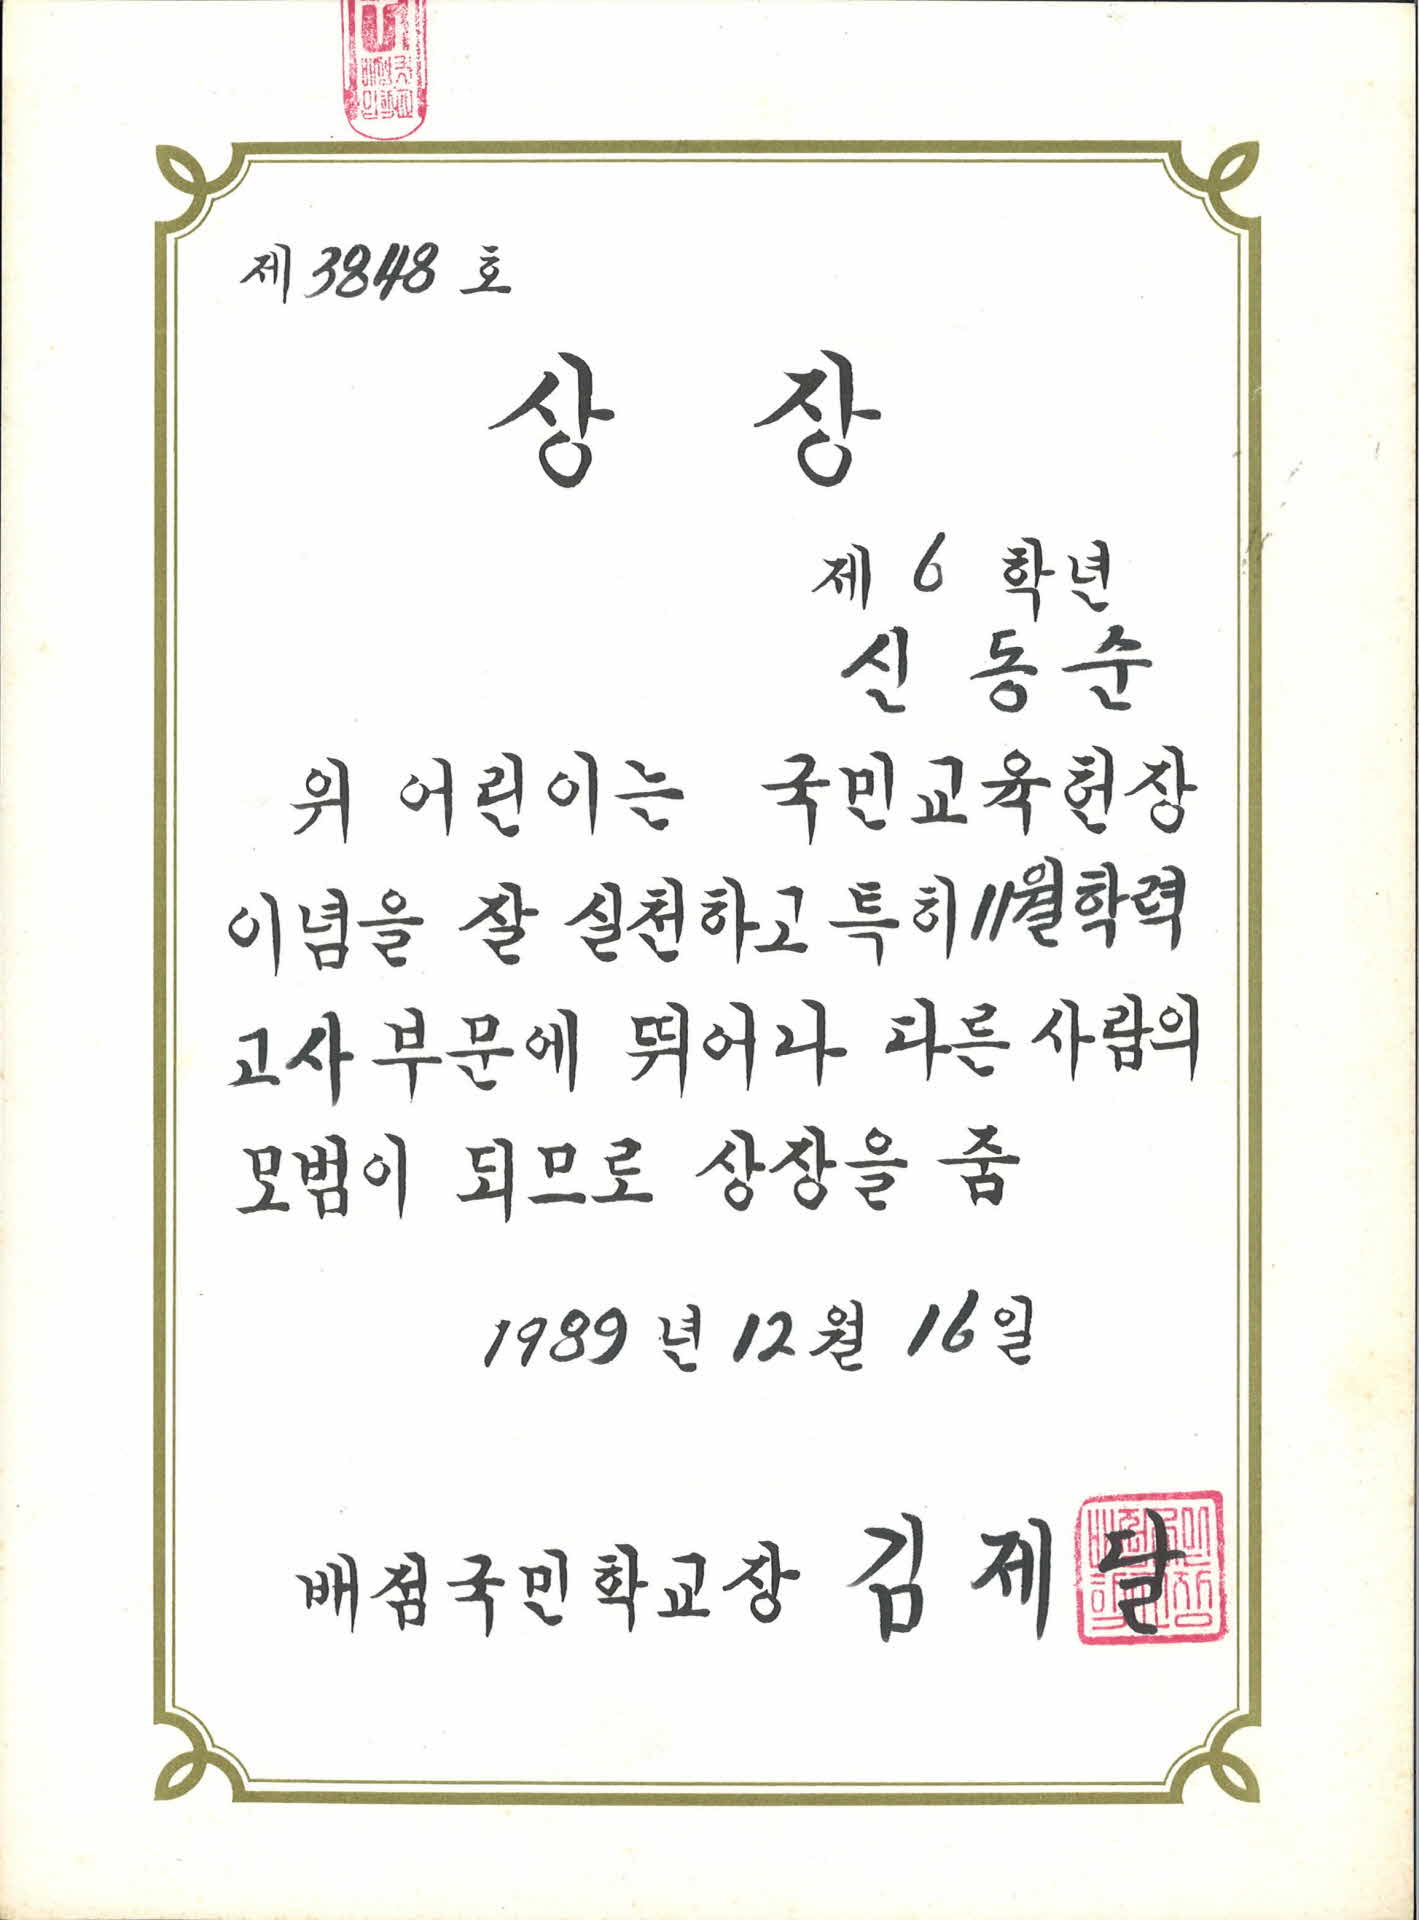 제 3848 호
상 장
제 6 학년
신 동 순
위 어린이는 국민교육헌장
이념을 잘 실천하고 특히 11월 학력
고사 부문에 뛰어나 다른 사람의
모범이 되므로 상장을 줌
1989 년 12 월 16 일
배점국민학교장 김 제 달